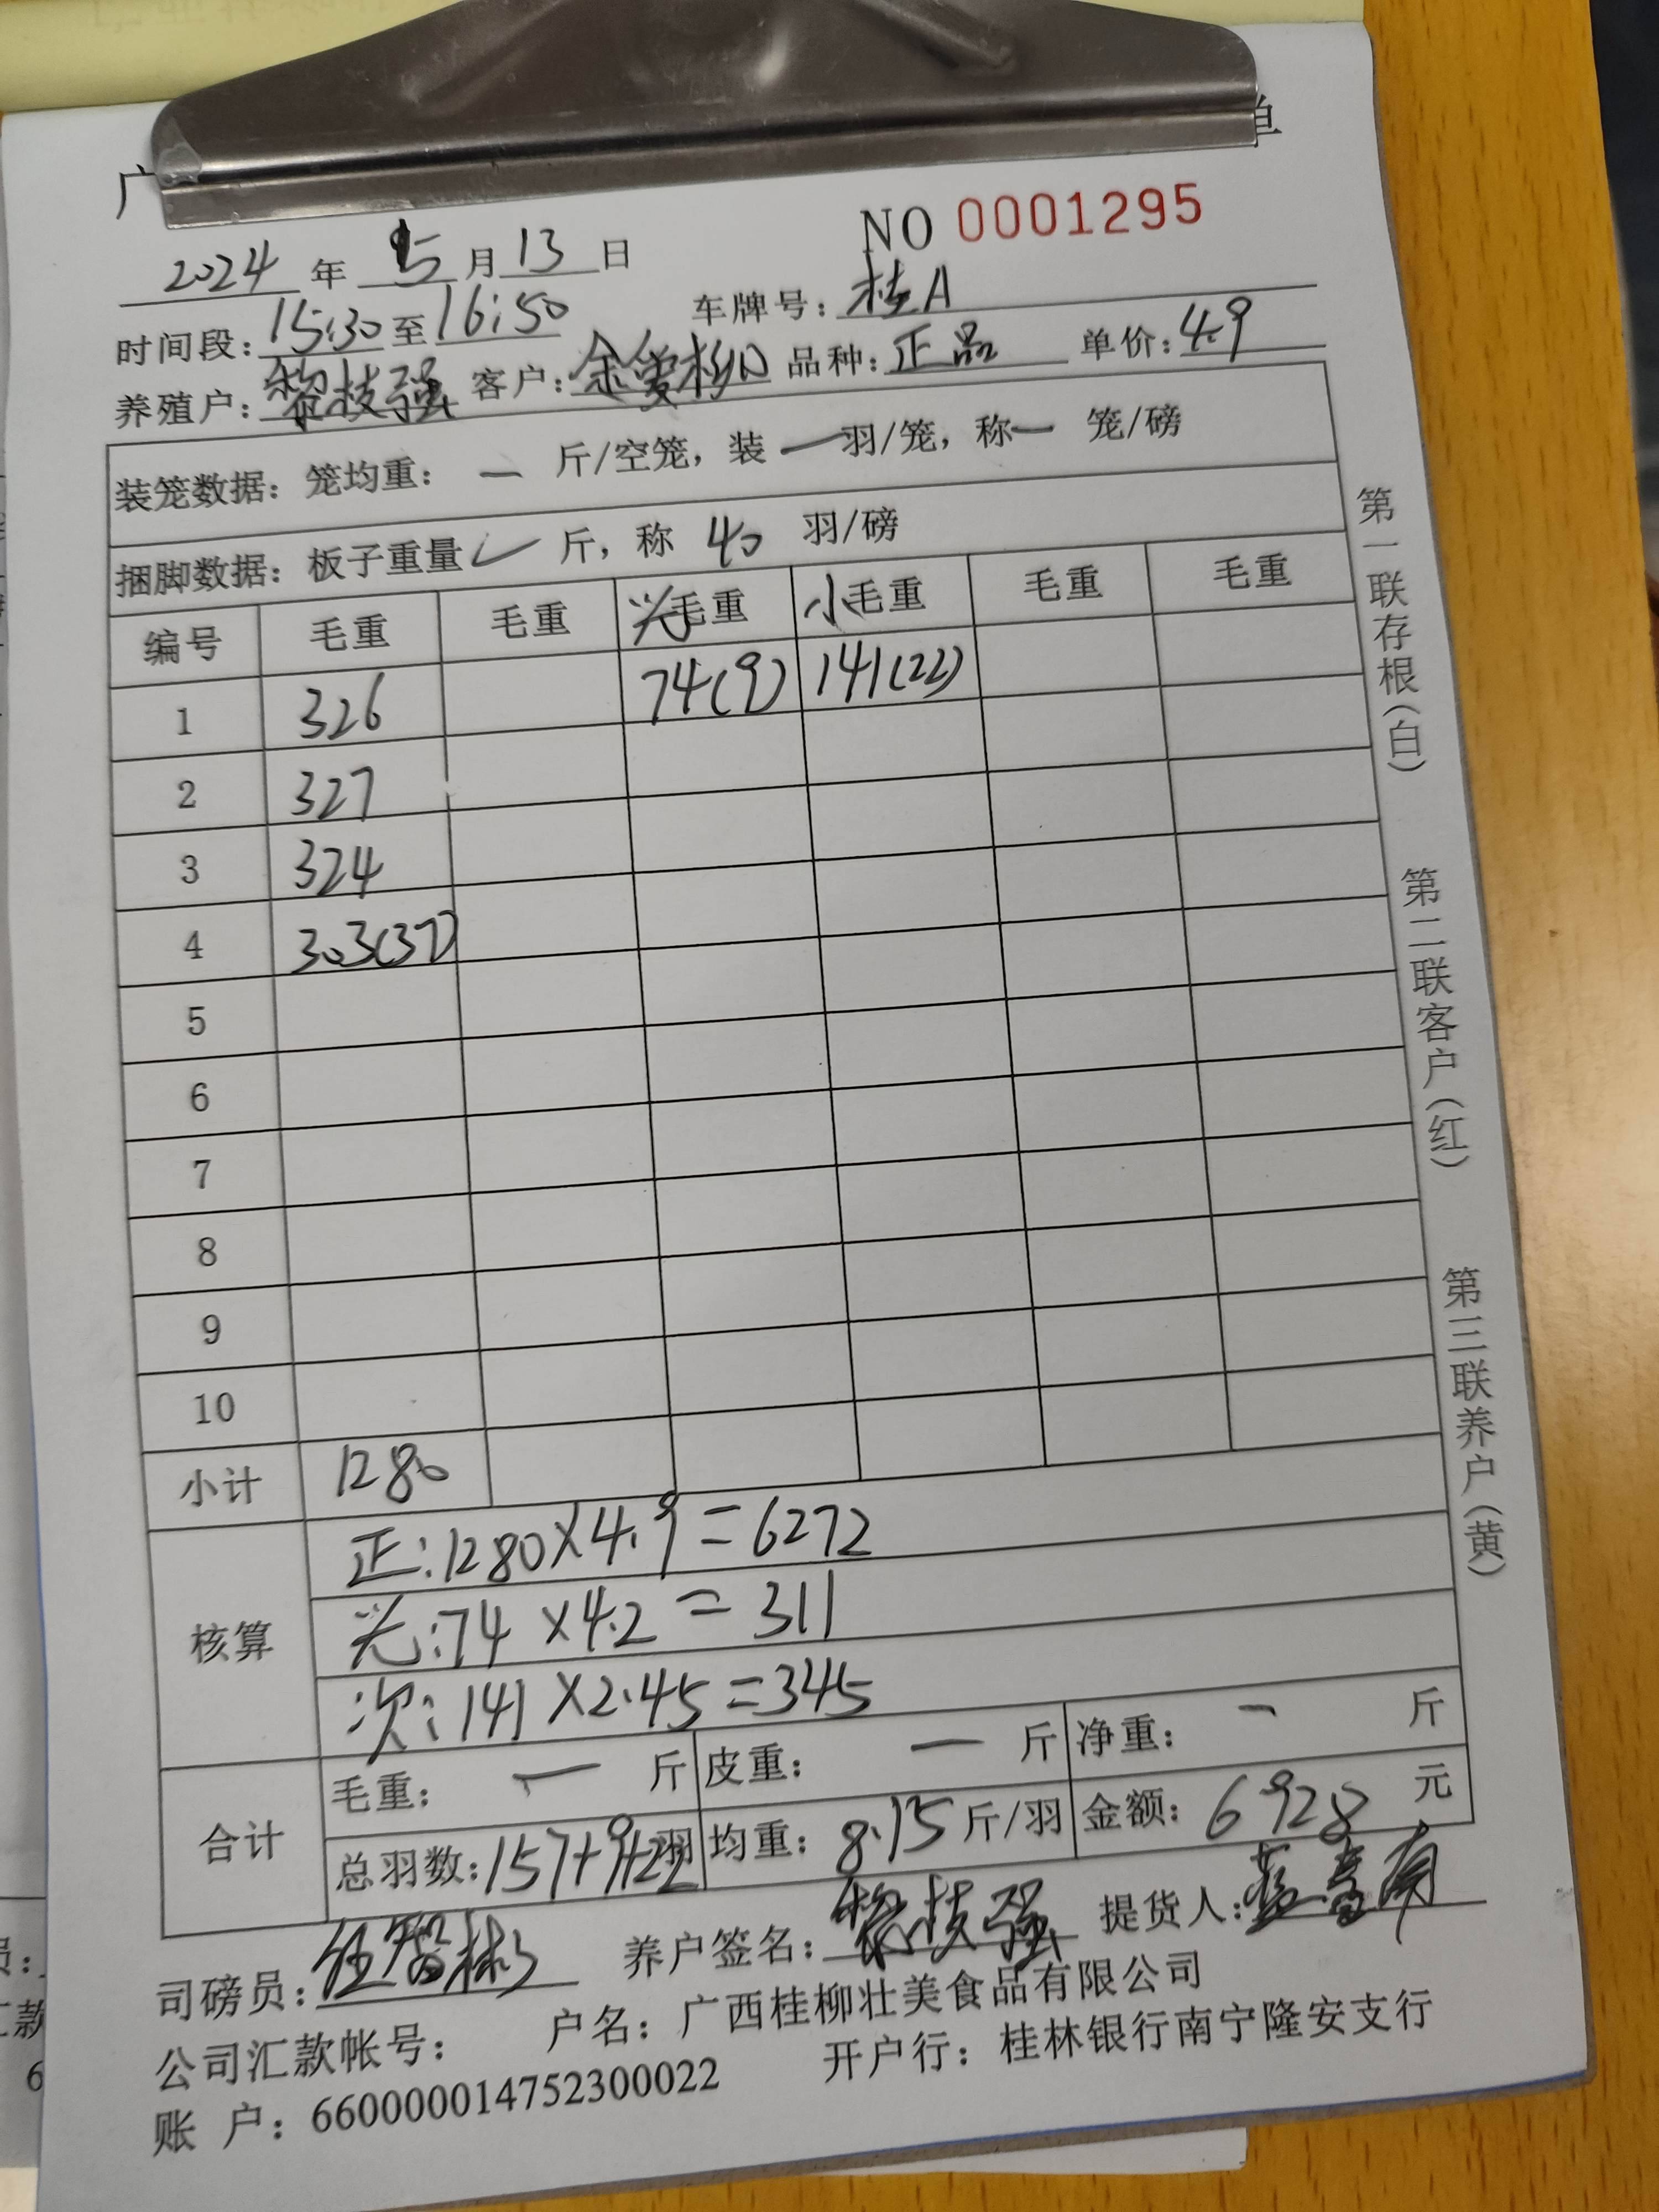 广 单
NO 0001295
2024 年 5 月 13 日
时间段: 15:30 至 16:50 车牌号: 桂A
养殖户: 黎技强 客户: 品种: 正品 单价: 4.9
装笼数据: 笼均重: 一 斤/空笼, 装 一 羽/笼, 称 一 笼/磅
捆脚数据: 板子重量 ✓ 斤, 称 40 羽/磅
编号 毛重 毛重 光毛重 小毛重 毛重 毛重
1 326 74(9) 141(22)
2 327
3 324
4 303(37)
5
6
7
8
9
10
小计 1280
核算
正: 1280×4.9=6272
光: 74×4.2=311
次: 141×2.45=345
合计
毛重: 一 斤 皮重: 一 斤 净重: 一 斤
总羽数: 157+9+22 羽 均重: 8.15 斤/羽 金额: 6928 元
司磅员: 养户签名: 黎技强 提货人:
公司汇款帐号: 户名: 广西桂柳壮美食品有限公司
账 户: 660000014752300022 开户行: 桂林银行南宁隆安支行
第一联存根(白)
第二联客户(红)
第三联养户(黄)
员:
汇款
6